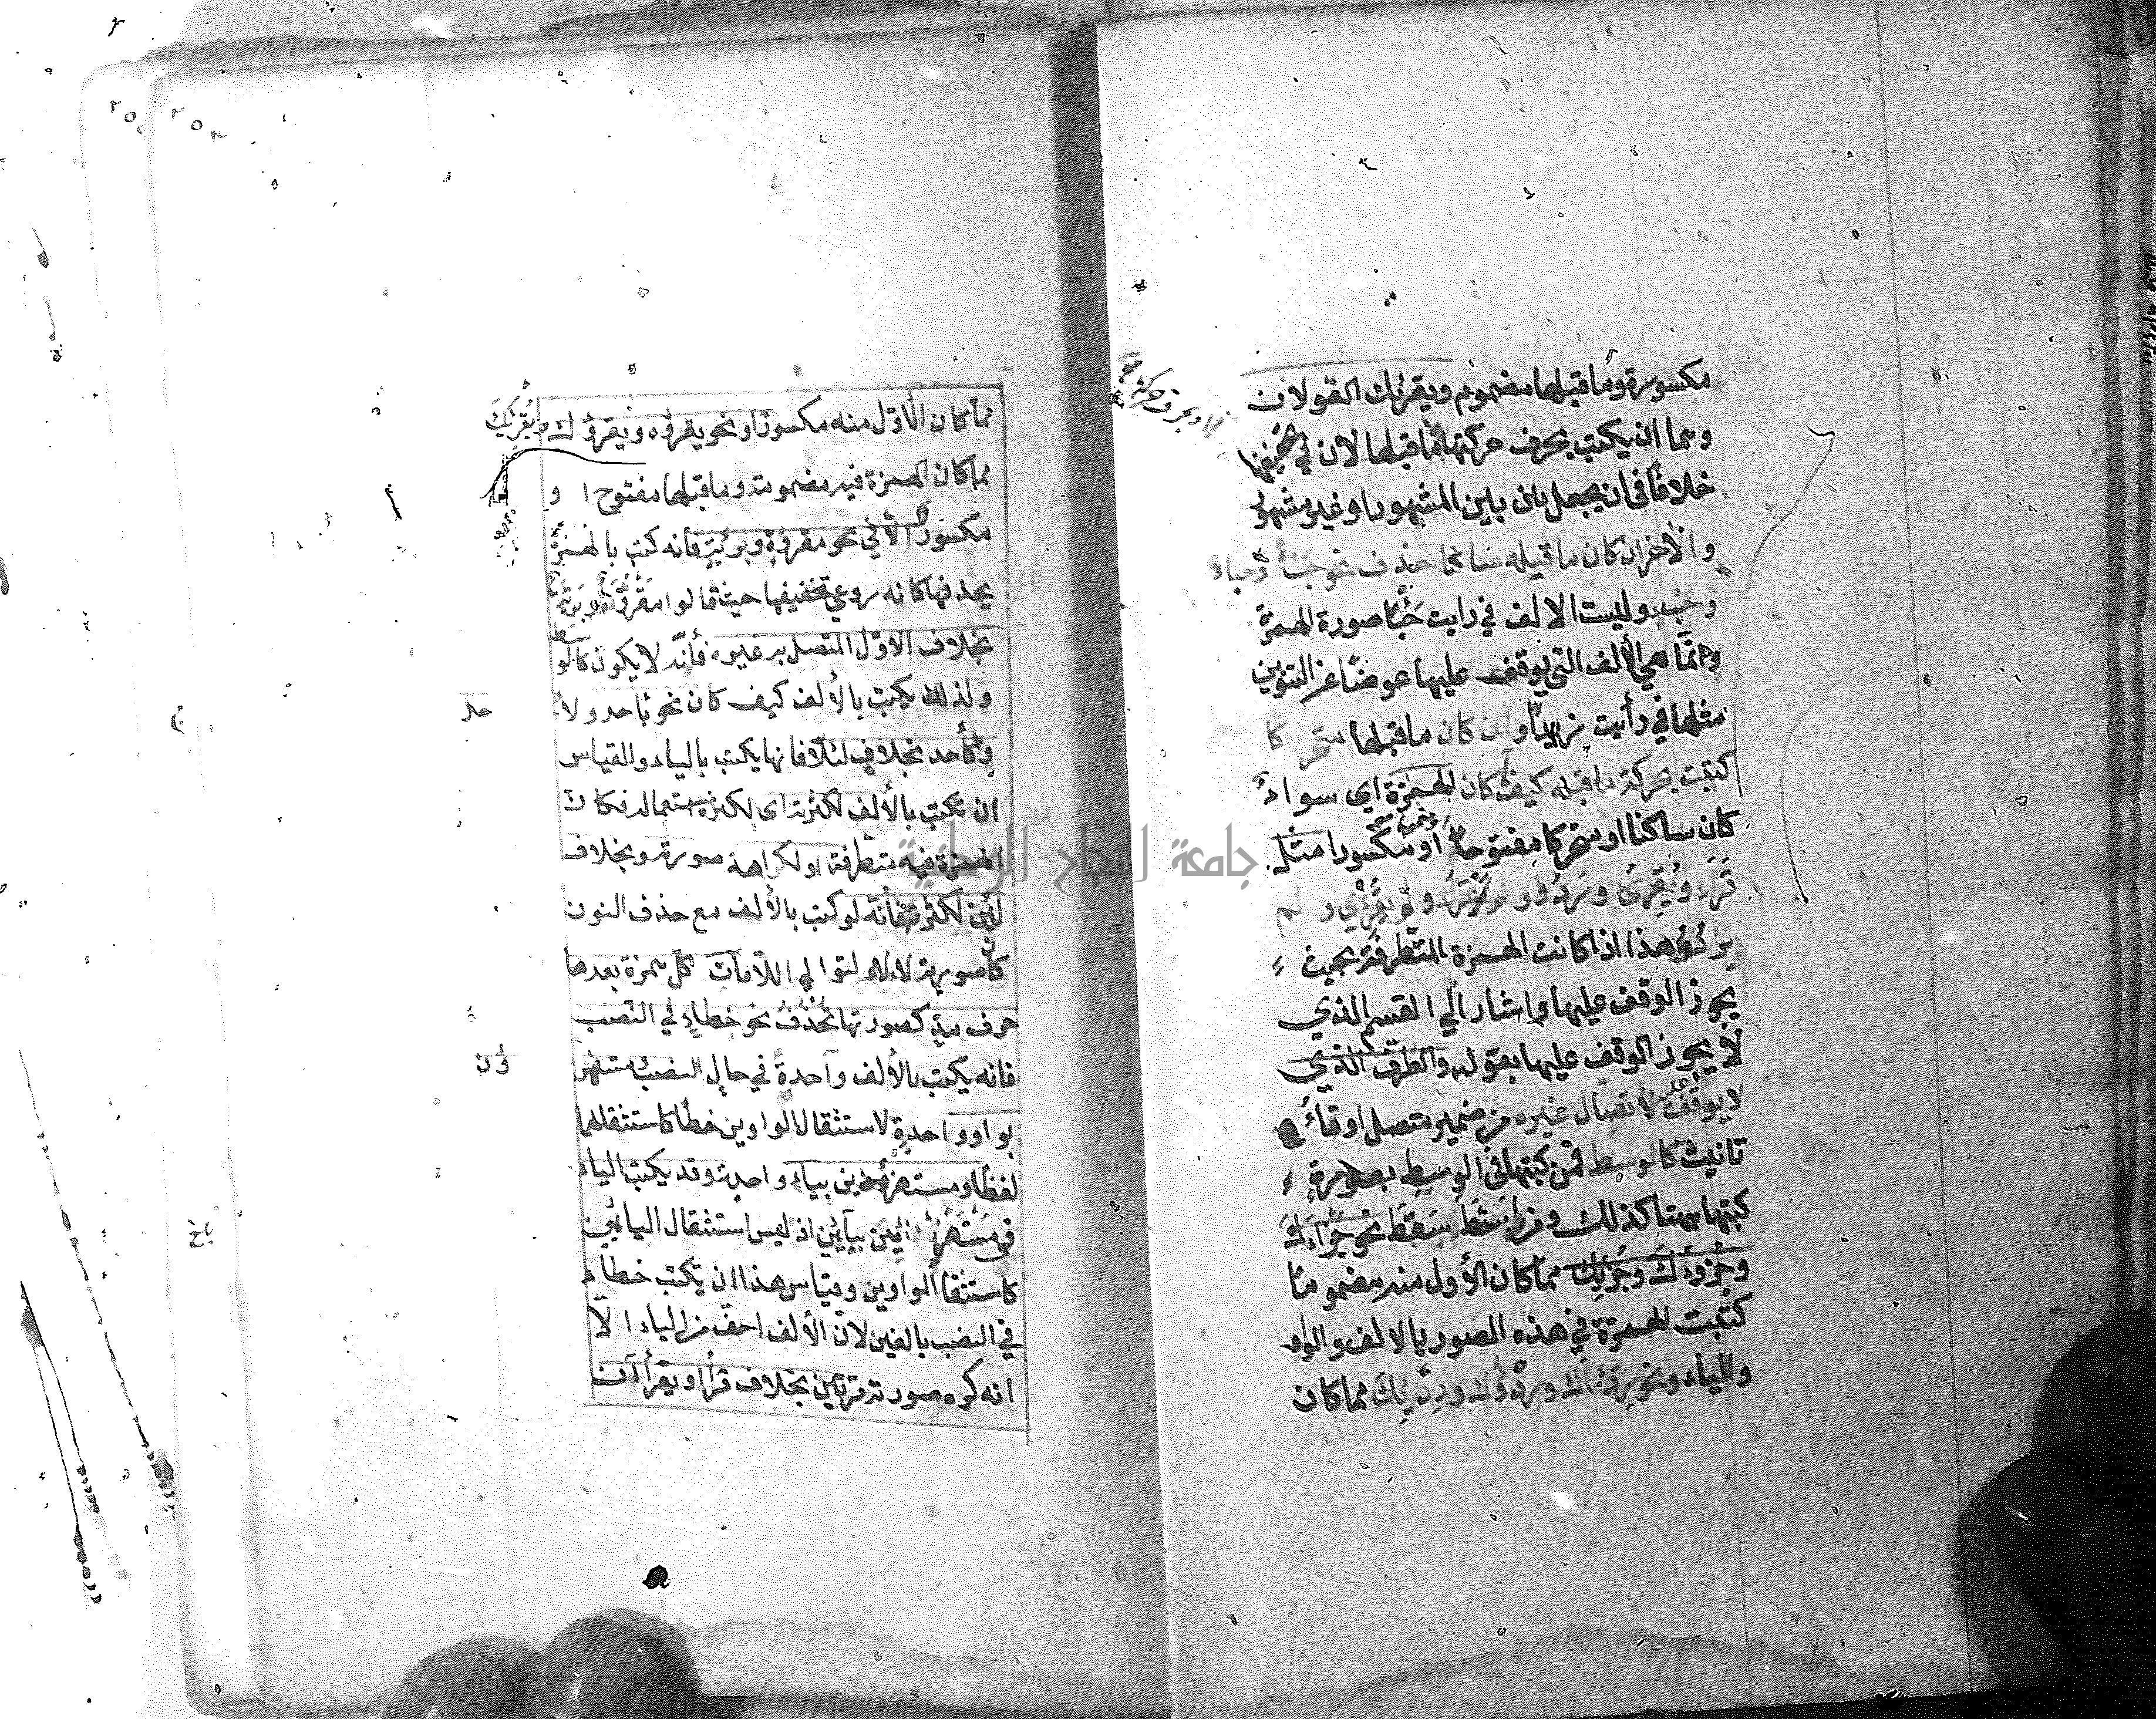 مكسورة وما قبلها مضموم ويقرئك القولان
وهما ان يكتب بحرف حركتها او ما قبلها لان في تخفيفها
خلافا في ان يجعل بين بين المشهور او غير مشهور
والآخر ان كان ما قبله ساكنا حذف نحو خبأ وخباء
وخبء وليست الالف في رايت خبأ صورة الهمزة
وانما هي الألف التي يوقف عليها عوضا عن التنوين
مثلها في رأيت زيدا وان كان ما قبلها متحركا
كتبت بحركة ما قبله كيف كان الهمزة اي سواء
كان ساكنا او متحركا مفتوحا او مكسورا مثل
قرأ ويقرئ وردؤ ولم يقرأ ولم يقرئ ولم
يردؤ هذا اذا كانت الهمزة المتطرفة بحيث
يجوز الوقف عليها واشار الي القسم الذي
لا يجوز الوقف عليها بقوله والطرف الذي
لا يوقف عليه لاتصال غيره من ضمير متصل او تاء
تانيث كالوسط فمن كتبها في الوسط بصورة
كتبها ههنا كذلك ومن اسقط سقط نحو جزاءك
وجزؤك وجزئك مما كان الأول منه مضموما
كتبت الهمزة في هذه الصور بالالف والواو
والياء ونحو ردأك وردؤك وردئك مما كان
مما كان الأول منه مكسورا ونحو يقرؤه ويقرؤك ويقرئك
مما كان الهمزة فيه مضمومة وما قبلها مفتوح او
مكسور الا في نحو مقروة وبرية فانه كتب بالهمزة
يحذفها كانه روعي تخفيفها حيث قالوا مقروة وبرية
بخلاف الاول المتصل به غيره فأنه لا يكون كالوسط
ولذلك يكتب بالألف كيف كان نحو باحد ولأحد
وكأحد بخلاف لئلا فانها يكتب بالياء والقياس
ان يكتب بالألف لكثرته اى لكثرة استعماله فكان
الهمزة فيه متطرفة او لكراهة صورته وبخلاف
لئن لكثرته فأنه لو كتب بالألف مع حذف النون
كان صورته لالا لتوالي اللامات وكل همزة بعدها
حرف مد كصورتها تحذف نحو خطاء في النصب
فانه يكتب بالألف واحدة في حال النصب ومستهزؤن
بواو واحدة لاستثقال الواوين خطا كاستثقالهما
لفظا ومستهزئين بياء واحدة وقد يكتب الياء
في مستهزئين بيائين اذ ليس استثقال اليائين
كاستثقال الواوين وقياس هذا ان يكتب خطاء
في النصب بالفين لان الألف اخف من الياء الا
انه كره صورته مرتين بخلاف قرأا ويقرأان
جامعة النجاح الوطنية